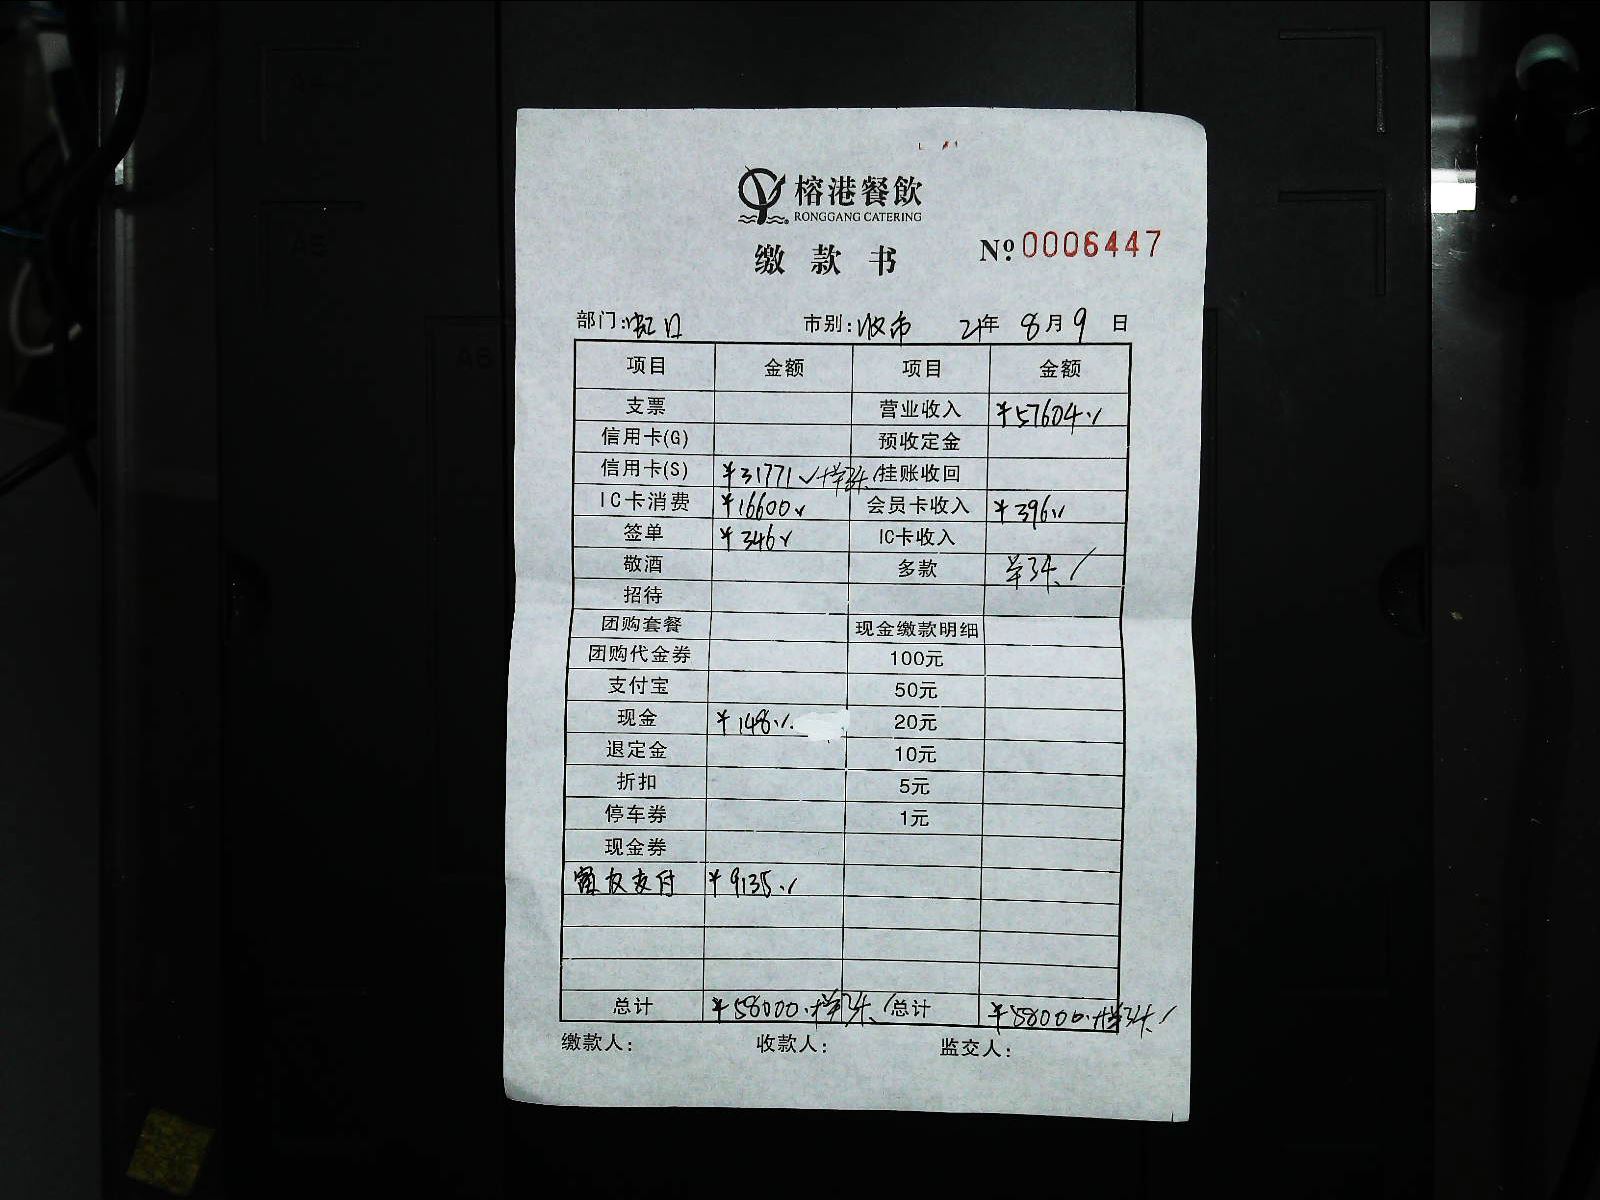 榕港餐飲
RONGGANG CATERING
缴款书 Nº 0006447
部门:虹口 市别:收市 21年 8月 9日
项目 金额 项目 金额
支票 营业收入 ¥57604.
信用卡(G) 预收定金
信用卡(S) ¥31771 挂账收回
IC卡消费 ¥16600 会员卡收入 ¥396
签单 ¥346 IC卡收入
敬酒 多款
招待
团购套餐 现金缴款明细
团购代金券 100元
支付宝 50元
现金 ¥148. 20元
退定金 10元
折扣 5元
停车券 1元
现金券
支付 ¥9135.
总计 ¥58000. 总计 ¥58000.
缴款人: 收款人: 监交人:
A5
A6